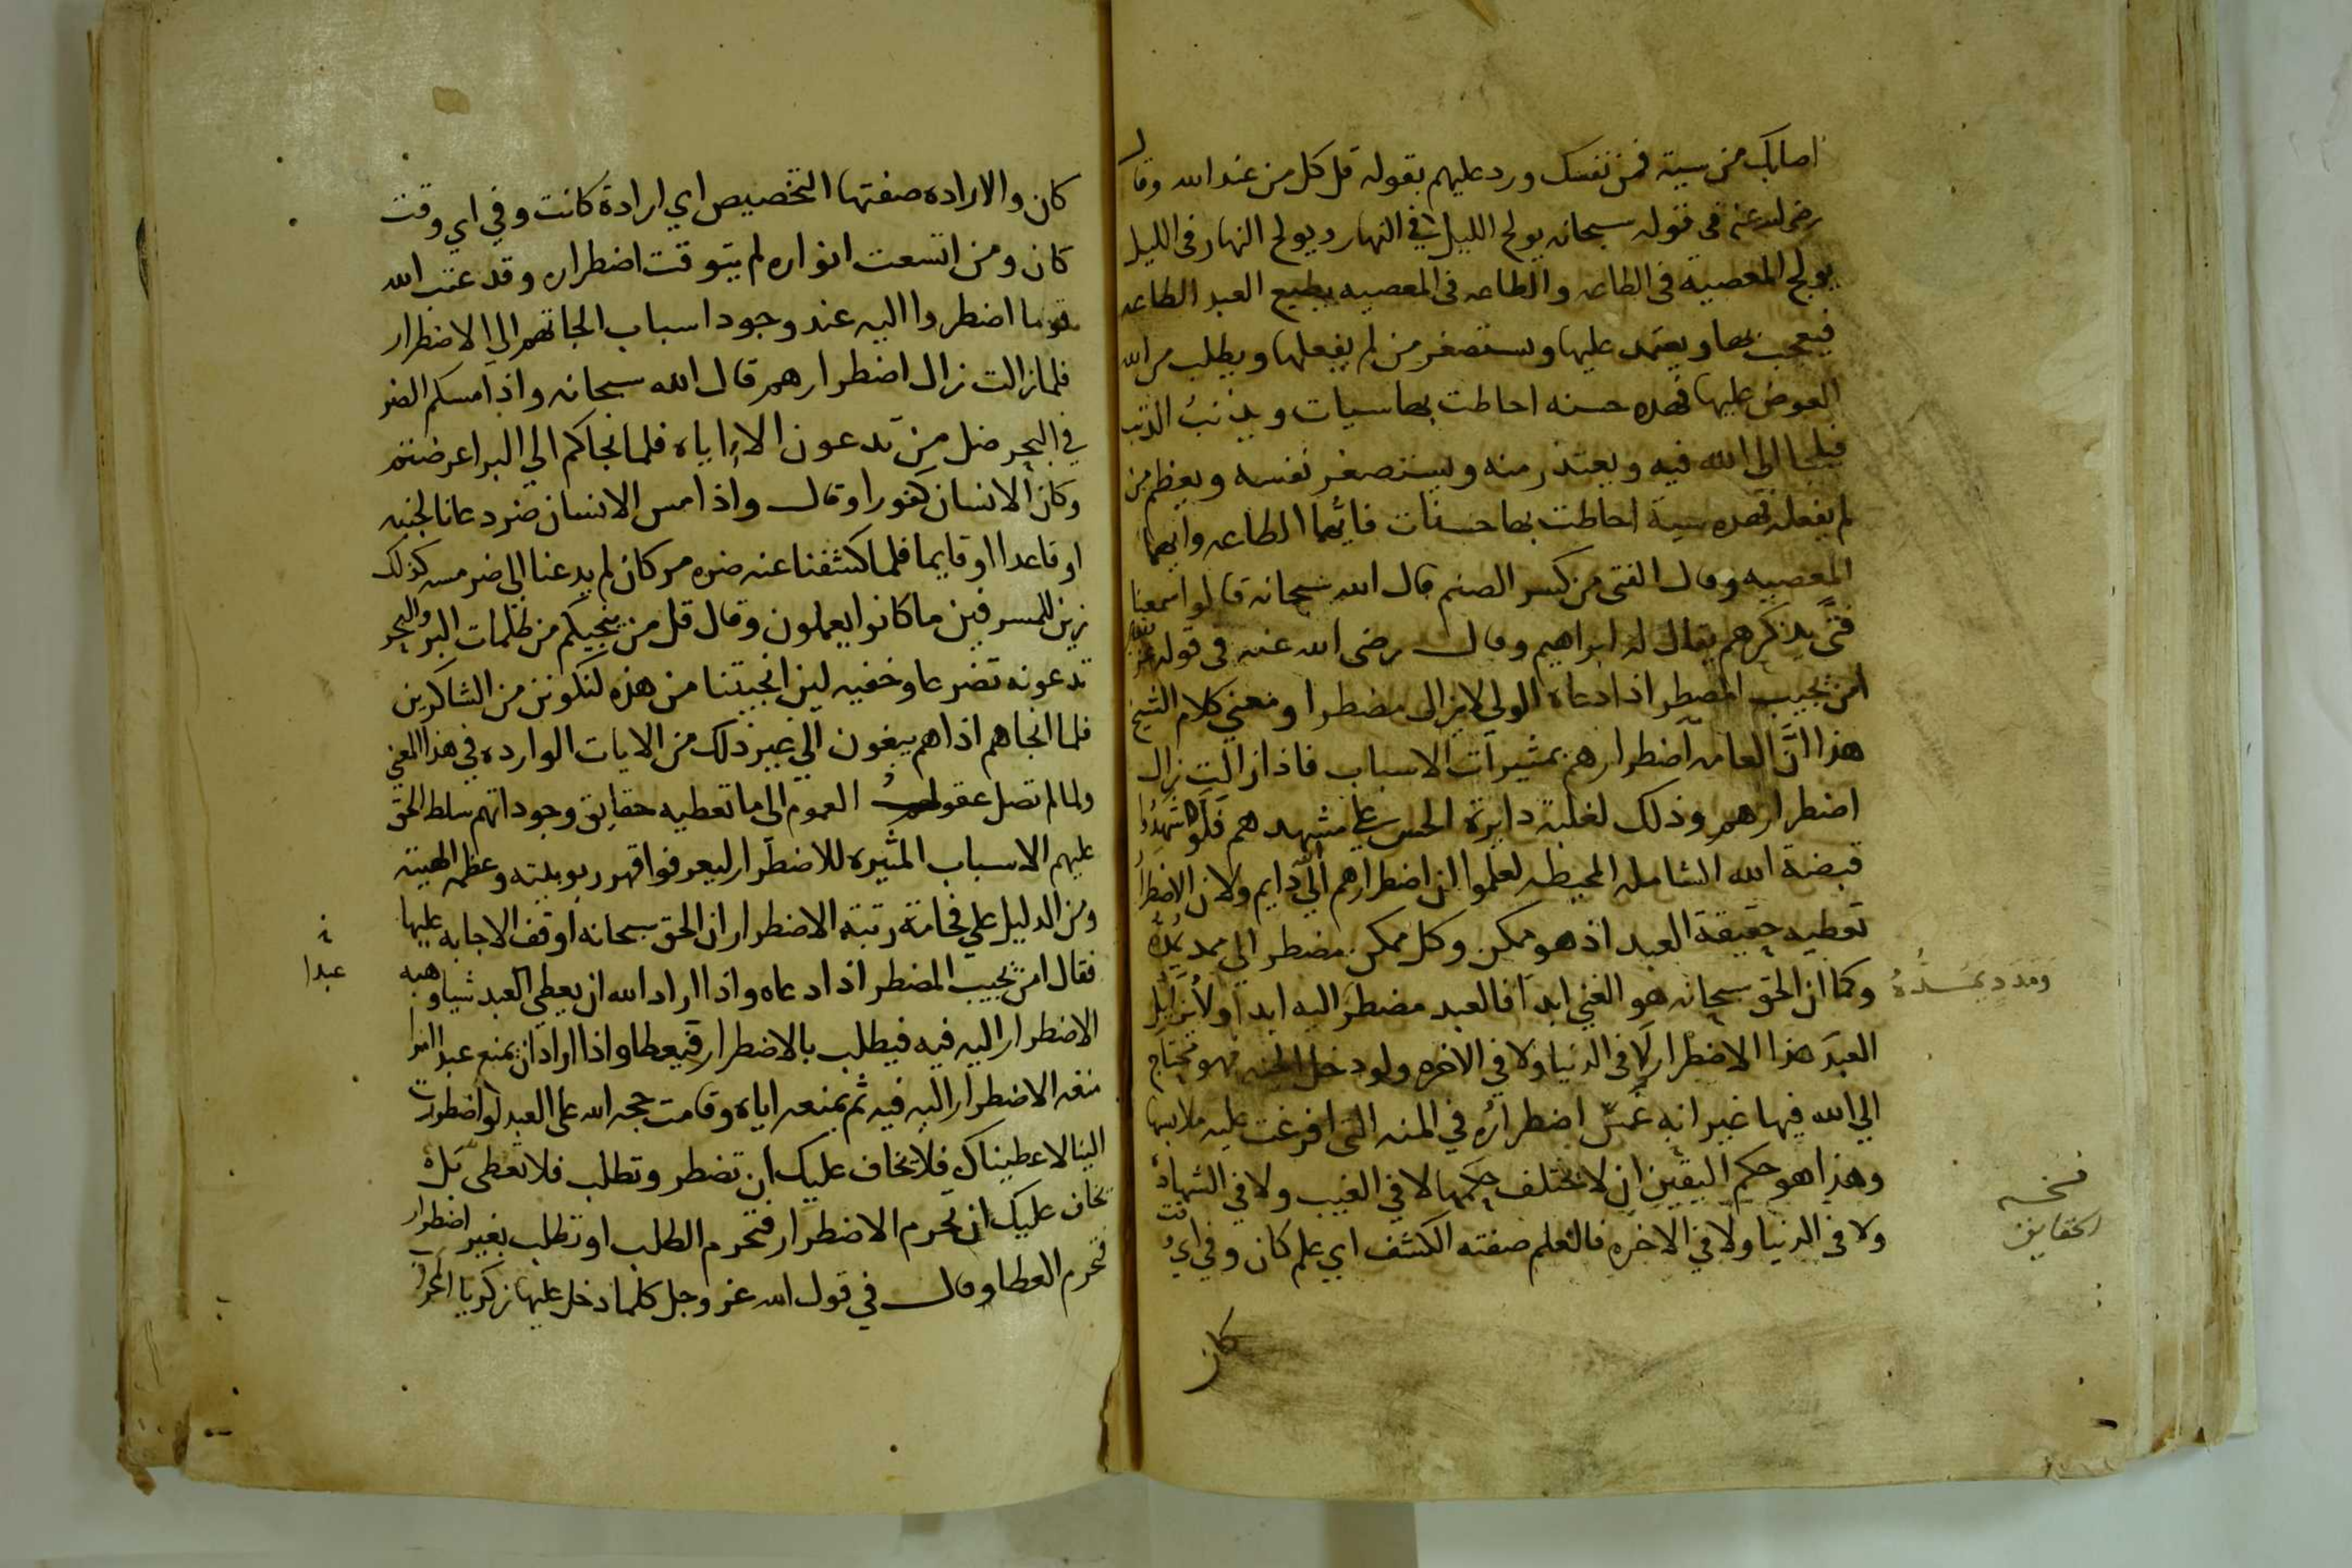 اصابك من سيية فمن نفسك ورد عليهم بقوله قل كل من عند الله وقال
رضي الله عنه في قوله سبحانه يولج الليل في النهار ويولج النهار في الليل
يولج المعصية في الطاعه والطاعه في المعصيه يطيع العبد الطاعه
فيعجب بها ويعتمد عليها ويستصغر من لم يفعلها ويطلب من الله
العوض عليها فهذه حسنه احاطت بها سيات ويذنب الذنب
فيلجا الى الله فيه ويعتذر منه ويستصغر نفسه ويعظم من
لم يفعله فهذه سية احاطت بها حسنات فايهما الطاعه وايهما
المعصيه وقال الفتى من كسر الصنم قال الله سبحانه قالوا سمعنا
فتى يذكرهم يقال له ابراهيم وقال رضى الله عنه في قوله
امن يجيب المضطر اذا دعاه الولي لا يزال مضطرا ومعني كلام الشيخ
هذا ان العامه اضطرارهم بمثيرات الاسباب فاذا زالت زال
اضطرارهم وذلك لغلبة دايرة الحس على مشهدهم فلو شهدوا
قبضة الله الشامله المحيطه لعلموا ان اضطرارهم الي دايم ولان الاضطرار
تعطيه حقيقة العبد اذ هو ممكن وكل ممكن مضطر الي ممد يمده
ومدد يمده
وكما ان الحق سبحانه هو الغني ابدا فالعبد مضطر اليه ابدا ولا يزايل
العبد هذا الاضطرار لا في الدنيا ولا في الاخره ولو دخل الجنه فهو محتاج
الي الله فيها غير انه غمس اضطراره في المنه التي افرغت عليه ملابسها
وهذا هو حكم اليقين ان لا يختلف حكمها لا في الغيب ولا في الشهادة
نسخه
الحقايق
ولا في الدنيا ولا في الاخره فالعلم صفته الكشف اي علم كان وفي اي وقت
كان
كان والاراده صفتها التخصيص اي ارادة كانت وفي اي وقت
كان ومن اتسعت انواره لم يتوقت اضطراره وقد عتب الله
قوما اضطروا اليه عند وجود اسباب الجاتهم الي الاضطرار
فلما زالت زال اضطرارهم قال الله سبحانه واذا مسكم الضر
في البحر ضل من تدعون الا اياه فلما نجاكم الي البر اعرضتم
وكان الانسان كفورا وقال واذا مس الانسان ضر دعانا لجنبه
او قاعدا او قايما فلما كشفنا عنه ضره مر كان لم يدعنا الى ضر مسه كذلك
زين للمسرفين ما كانوا يعملون وقال قل من ينجيكم من ظلمات البر والبحر
تدعونه تضرعا وخفيه لين انجيتنا من هذه لنكونن من الشاكرين
فلما انجاهم اذا هم يبغون الي غير ذلك من الايات الوارده في هذا المعني
ولما لم تصل عقول العموم الى ما تعطيه حقايق وجوداتهم سلط الحق
عليهم الاسباب المثيره للاضطرار ليعرفوا قهر ربوبيته وعظمه الهيته
ومن الدليل علي فخامة رتبة الاضطرار ان الحق سبحانه اوقف الاجابه عليها
فقال امن يجيب المضطر اذا دعاه واذا اراد الله ان يعطي العبد شيا وهبه
عبدا
الاضطرار اليه فيه فيطلب بالاضطرار فيعطا واذا اراد ان يمنع عبدا امرا
منعه الاضطرار اليه فيه ثم يمنعه اياه وقامت حجه الله على العبد لو اضطررت
الينا لاعطيناك فلا يخاف عليك ان تضطر وتطلب فلا تعطى بل
يخاف عليك ان تحرم الاضطرار فتحرم الطلب او تطلب بغير اضطرار
فتحرم العطا وقال في قول الله عز وجل كلما دخل عليها زكريا المحراب